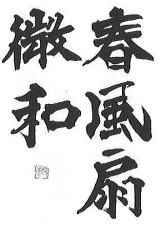 春風扇
微和